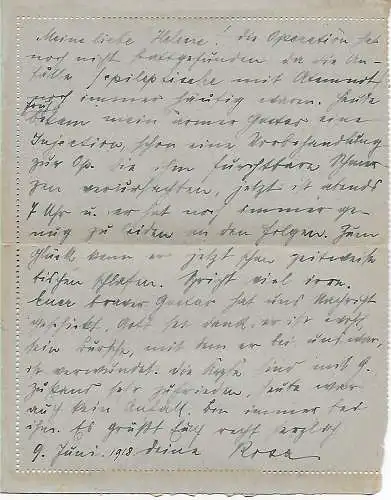 Meine liebe Helene! die Operation hat
noch nicht stattgefunden da die An-
fälle epileptische mit Atemnot
noch immer häufig waren. Heute
früh
bekam mein armer Gatte eine
Injection, schon eine Vorbehandlung
zur Op. die ihm furchtbare Schmer
zen verursachten, jetzt ist abends
7 Uhr u. er hat noch immer ge-
nug zu leiden an den Folgen. Zum
Glück kann er jetzt schon zeitweise
bischen schlafen. Spricht viel irre.
Euer braver hat uns Nachricht
geschickt, Gott sei dank, er ist wohl,
sein Bursche, mit dem er bei uns war,
ist verwundet. die Ärzte sind mit
sehr zufrieden, heute war
auch kein Anfall. bin immer bei
ihm. Es grüßt Euch recht herzlich
9. Juni. 918. deine Rosa